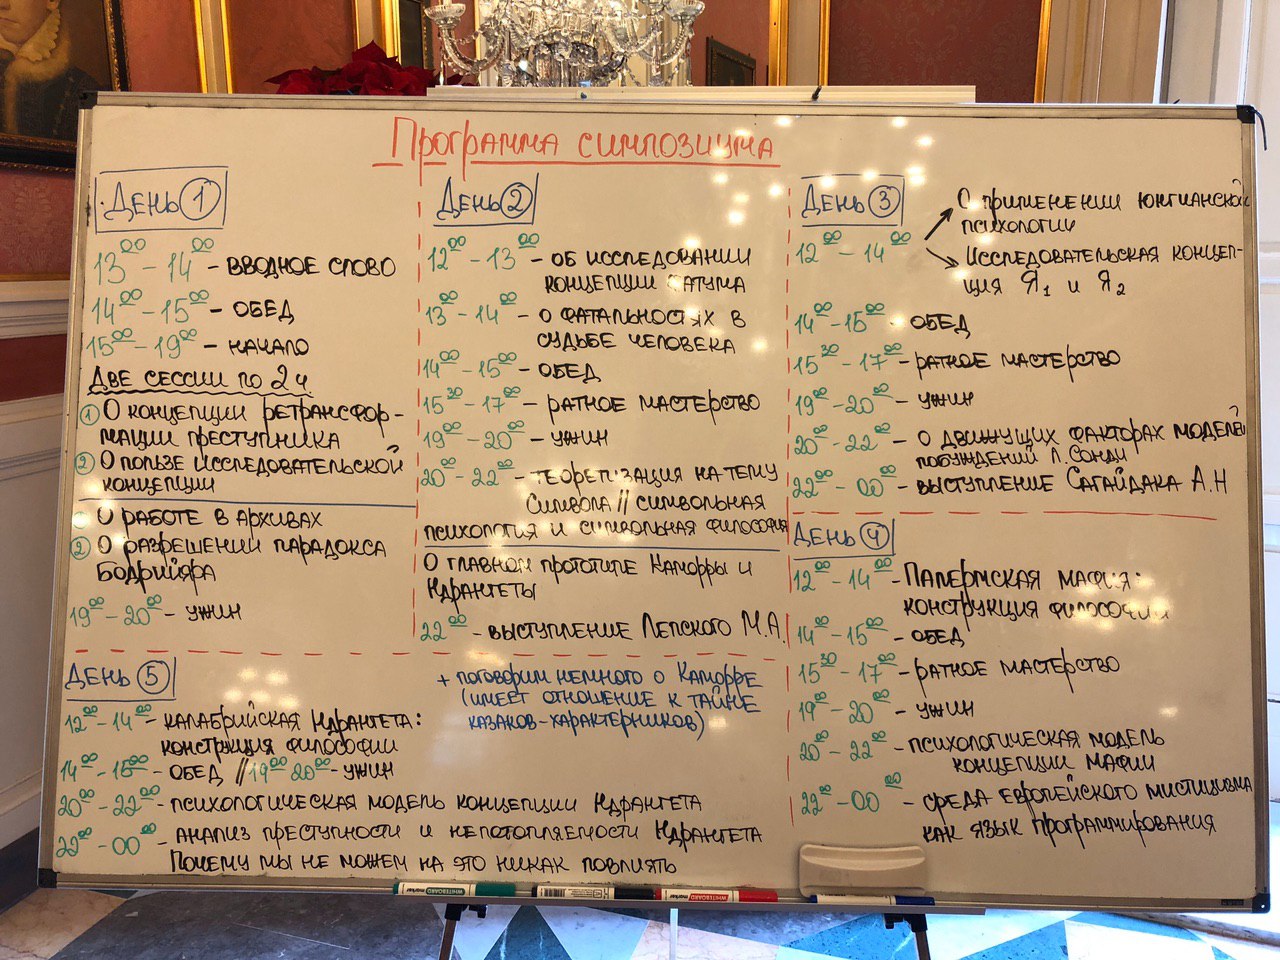 Программа симпозиума
День 1
13⁰⁰ – 14⁰⁰ – вводное слово
14⁰⁰ – 15⁰⁰ – обед
15⁰⁰ – 19⁰⁰ – начало
Две сессии по 2 ч.
1 О концепции ретрансфор-
мации преступника
2 О пользе исследовательской
концепции
О работе в архивах
2 О разрешении парадокса
Бодрийяра
19⁰⁰ – 20⁰⁰ – ужин
День 2
12⁰⁰ – 13⁰⁰ – об исследовании
концепции фатума
13⁰⁰ – 14⁰⁰ – о фатальностях в
судьбе человека
14⁰⁰ – 15⁰⁰ – обед
15³⁰ – 17⁰⁰ – ратное мастерство
19⁰⁰ – 20⁰⁰ – ужин
20⁰⁰ – 22⁰⁰ – теоретизация на тему
Символа // символьная
психология и символьная философия
О главном прототипе Каморры и
Ндрангеты
22⁰⁰ – выступление Лепского М.А.
День 3
12⁰⁰ – 14⁰⁰
О применении юнгианской
психологии
Исследовательская концеп-
ция Я₁ и Я₂
14⁰⁰ – 15⁰⁰ – обед
15³⁰ – 17⁰⁰ – ратное мастерство
19⁰⁰ – 20⁰⁰ – ужин
20⁰⁰ – 22⁰⁰ – о движущих факторах моделей
побуждений Л. Сонди
22⁰⁰ – 00⁰⁰ – выступление Сагайдака А.Н
День 4
12⁰⁰ – 14⁰⁰ – Палермская мафия:
конструкция философии
14⁰⁰ – 15⁰⁰ – обед
15³⁰ – 17⁰⁰ – ратное мастерство
19⁰⁰ – 20⁰⁰ – ужин
20⁰⁰ – 22⁰⁰ – психологическая модель
концепции мафии
22⁰⁰ – 00⁰⁰ – среда европейского мистицизма
как язык программирования
День 5
12⁰⁰ – 14⁰⁰ – калабрийская Ндрангета:
конструкция философии
14⁰⁰ – 15⁰⁰ – обед // 19⁰⁰ 20⁰⁰ – ужин
20⁰⁰ – 22⁰⁰ – психологическая модель концепции Ндрангета
22⁰⁰ – 00⁰⁰ – анализ преступности и непотопляемости Ндрангета
Почему мы не можем на это никак повлиять
+ поговорим немного о Каморре
(имеет отношение к тайне
казаков-характерников)